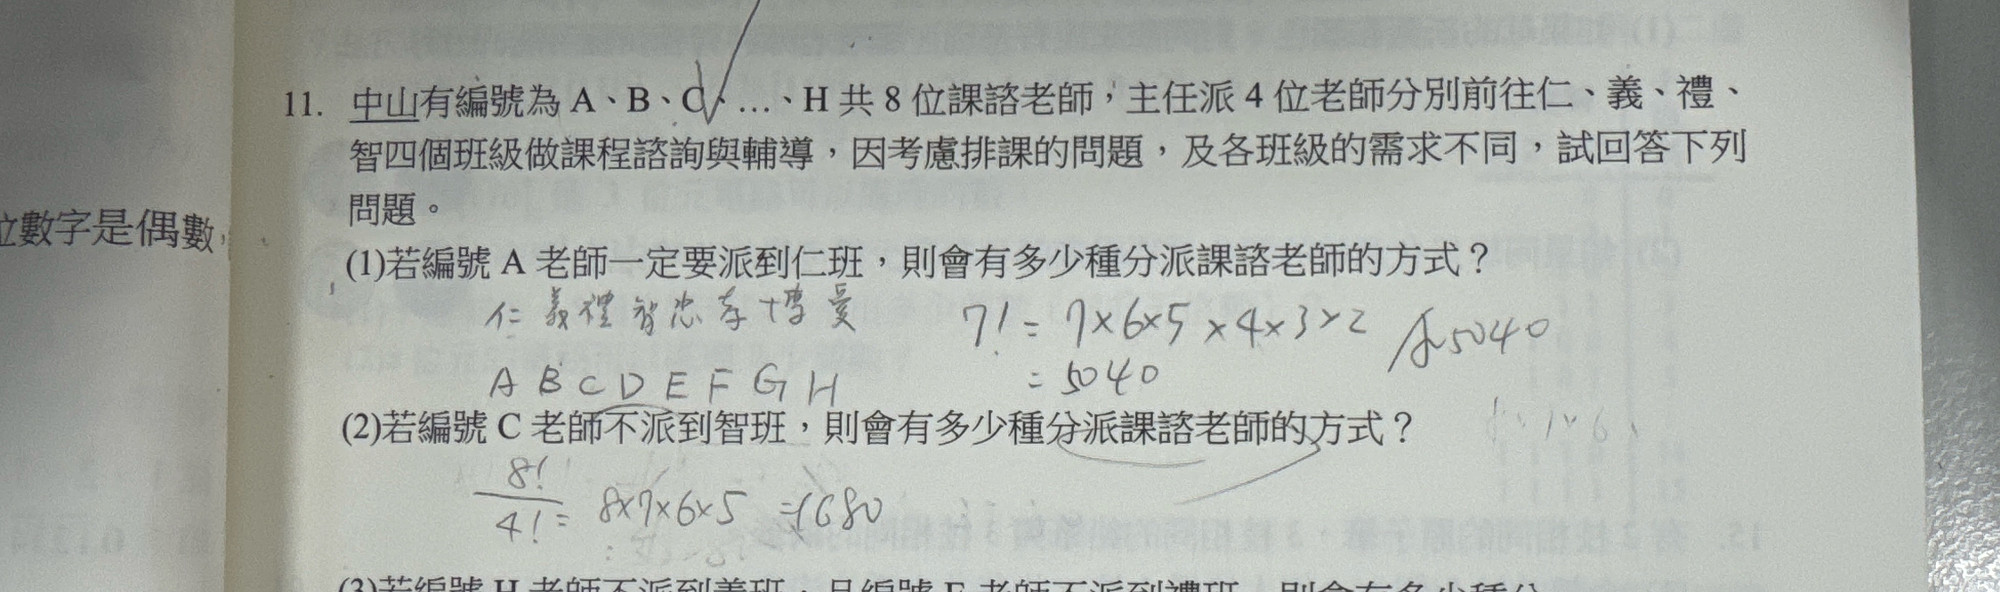 11. 中山有編號為 A、B、C、…、H 共 8 位課諮老師，主任派 4 位老師分別前往仁、義、禮、
智四個班級做課程諮詢與輔導，因考慮排課的問題，及各班級的需求不同，試回答下列
問題。
位數字是偶數，
(1)若編號 A 老師一定要派到仁班，則會有多少種分派課諮老師的方式？
仁 義 禮 智 忠 孝 博 愛
7! = 7×6×5×4×3×2
= 5040
A 5040
A B C D E F G H
(2)若編號 C 老師不派到智班，則會有多少種分派課諮老師的方式？
8!/4! = 8×7×6×5 =1680
(3)若編號 H 老師不派到義班，且編號 E 老師不派到禮班，則會有多少種分